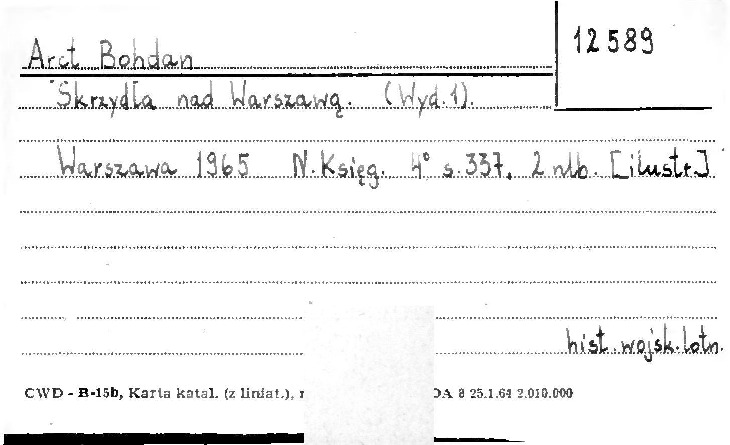 12589
Arct Bohdan
Skrzydła nad Warszawą. (Wyd.1).
Warszawa 1965 N. Księg. 4° s.337, 2 nlb. [ilustr.]
hist. wojsk. lotn.
CWD - B-15b, Karta katal. (z liniat.), DA 8 25.1.64 2.010.000